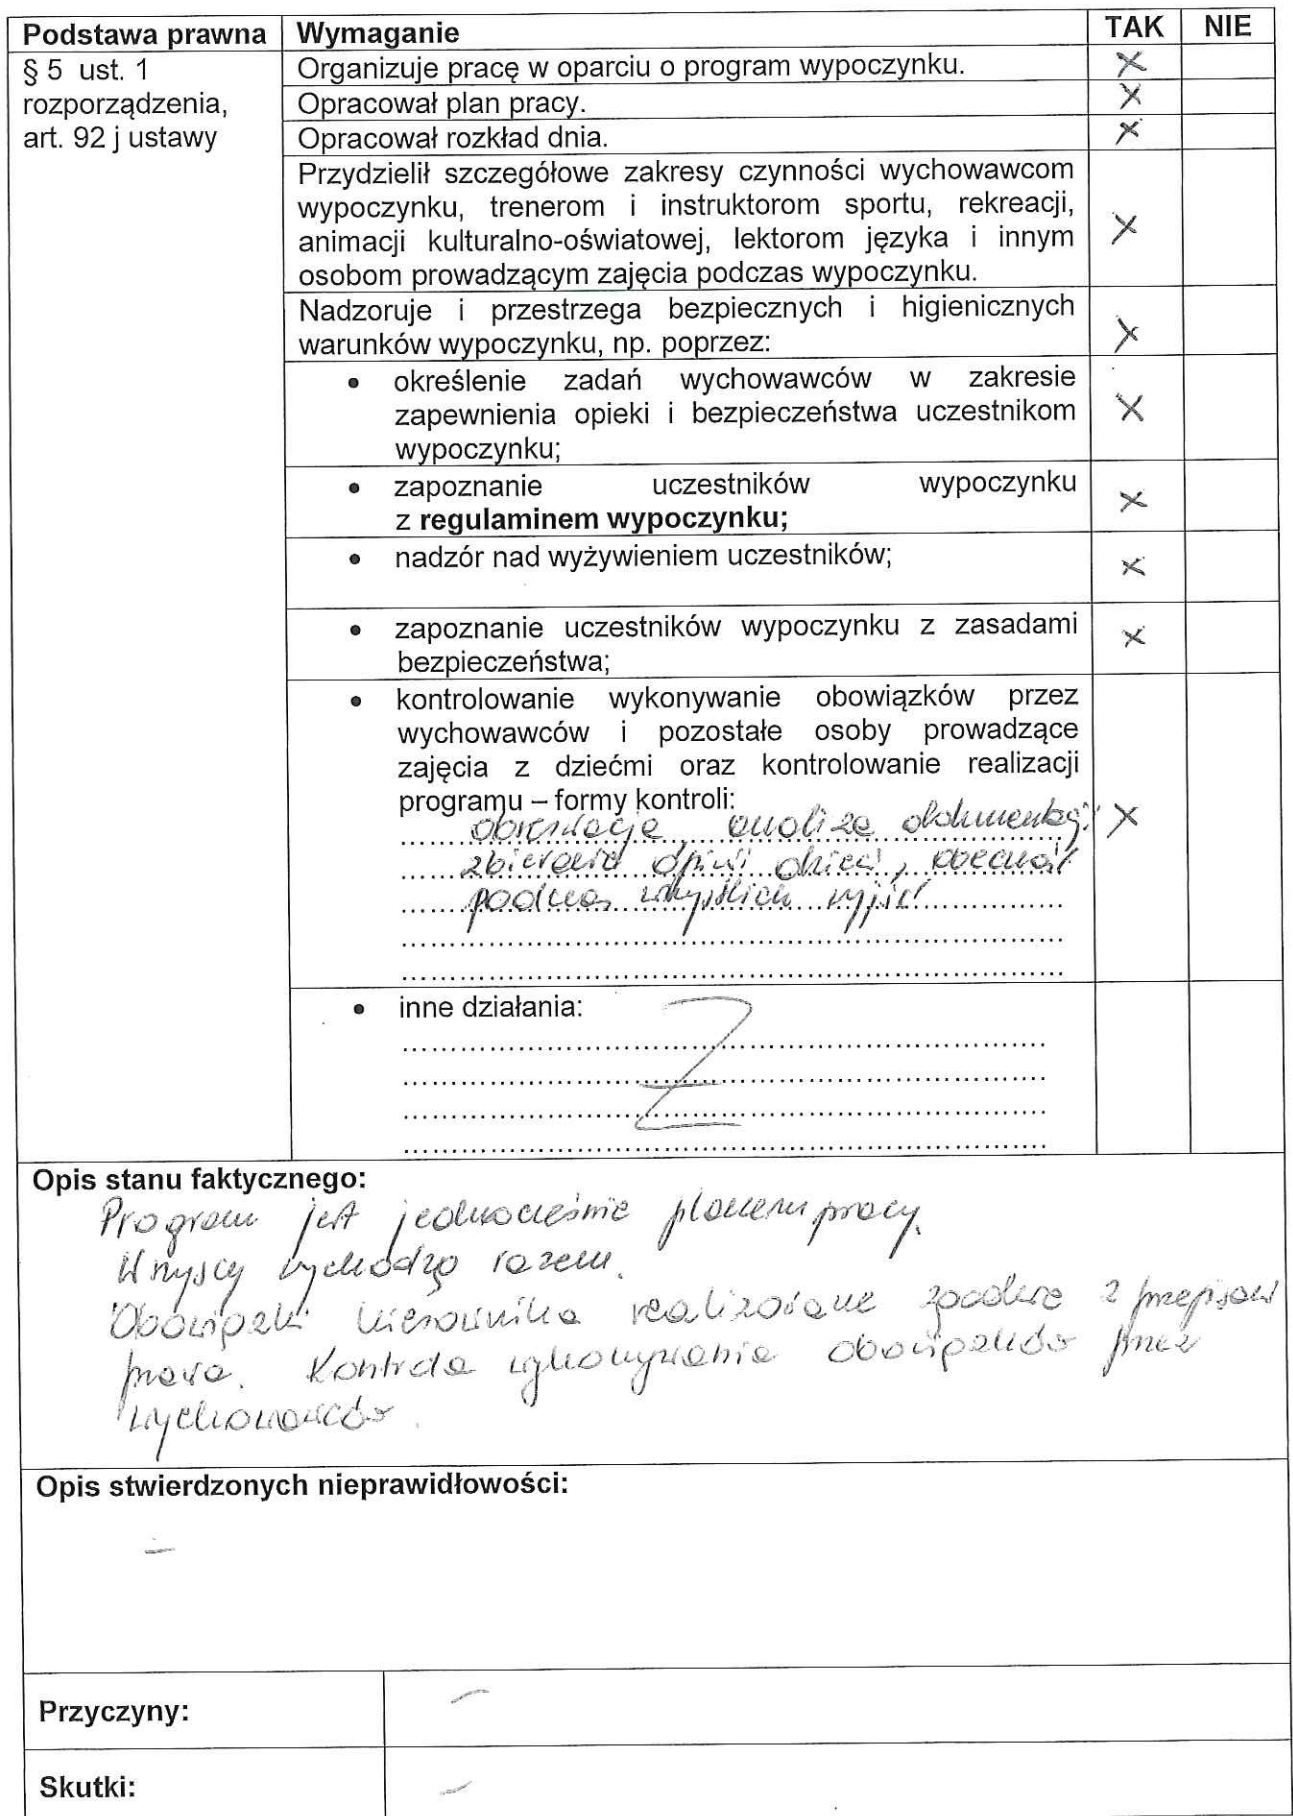 Podstawa prawna Wymaganie TAK NIE
§ 5 ust. 1 Organizuje pracę w oparciu o program wypoczynku. X
rozporządzenia, Opracował plan pracy. X
art. 92 j ustawy Opracował rozkład dnia. X
Przydzielił szczegółowe zakresy czynności wychowawcom
wypoczynku, trenerom i instruktorom sportu, rekreacji,
animacji kulturalno-oświatowej, lektorom języka i innym X
osobom prowadzącym zajęcia podczas wypoczynku.
Nadzoruje i przestrzega bezpiecznych i higienicznych
warunków wypoczynku, np. poprzez: X
• określenie zadań wychowawców w zakresie
zapewnienia opieki i bezpieczeństwa uczestnikom X
wypoczynku;
• zapoznanie uczestników wypoczynku
z regulaminem wypoczynku; X
• nadzór nad wyżywieniem uczestników; X
• zapoznanie uczestników wypoczynku z zasadami X
bezpieczeństwa;
• kontrolowanie wykonywanie obowiązków przez
wychowawców i pozostałe osoby prowadzące
zajęcia z dziećmi oraz kontrolowanie realizacji
programu – formy kontroli:
obserwacja, analiza dokumentacji X
zbieranie opinii dzieci, obecność
podczas wszystkich wyjść
• inne działania:
Z
Opis stanu faktycznego:
Program jest jednocześnie planem pracy.
Wszyscy wychodzą razem.
Obowiązki kierownika realizowane zgodnie z przepisami
prawa. Kontrola wykonywania obowiązków przez
wychowawców.
Opis stwierdzonych nieprawidłowości:
–
Przyczyny: –
Skutki: –